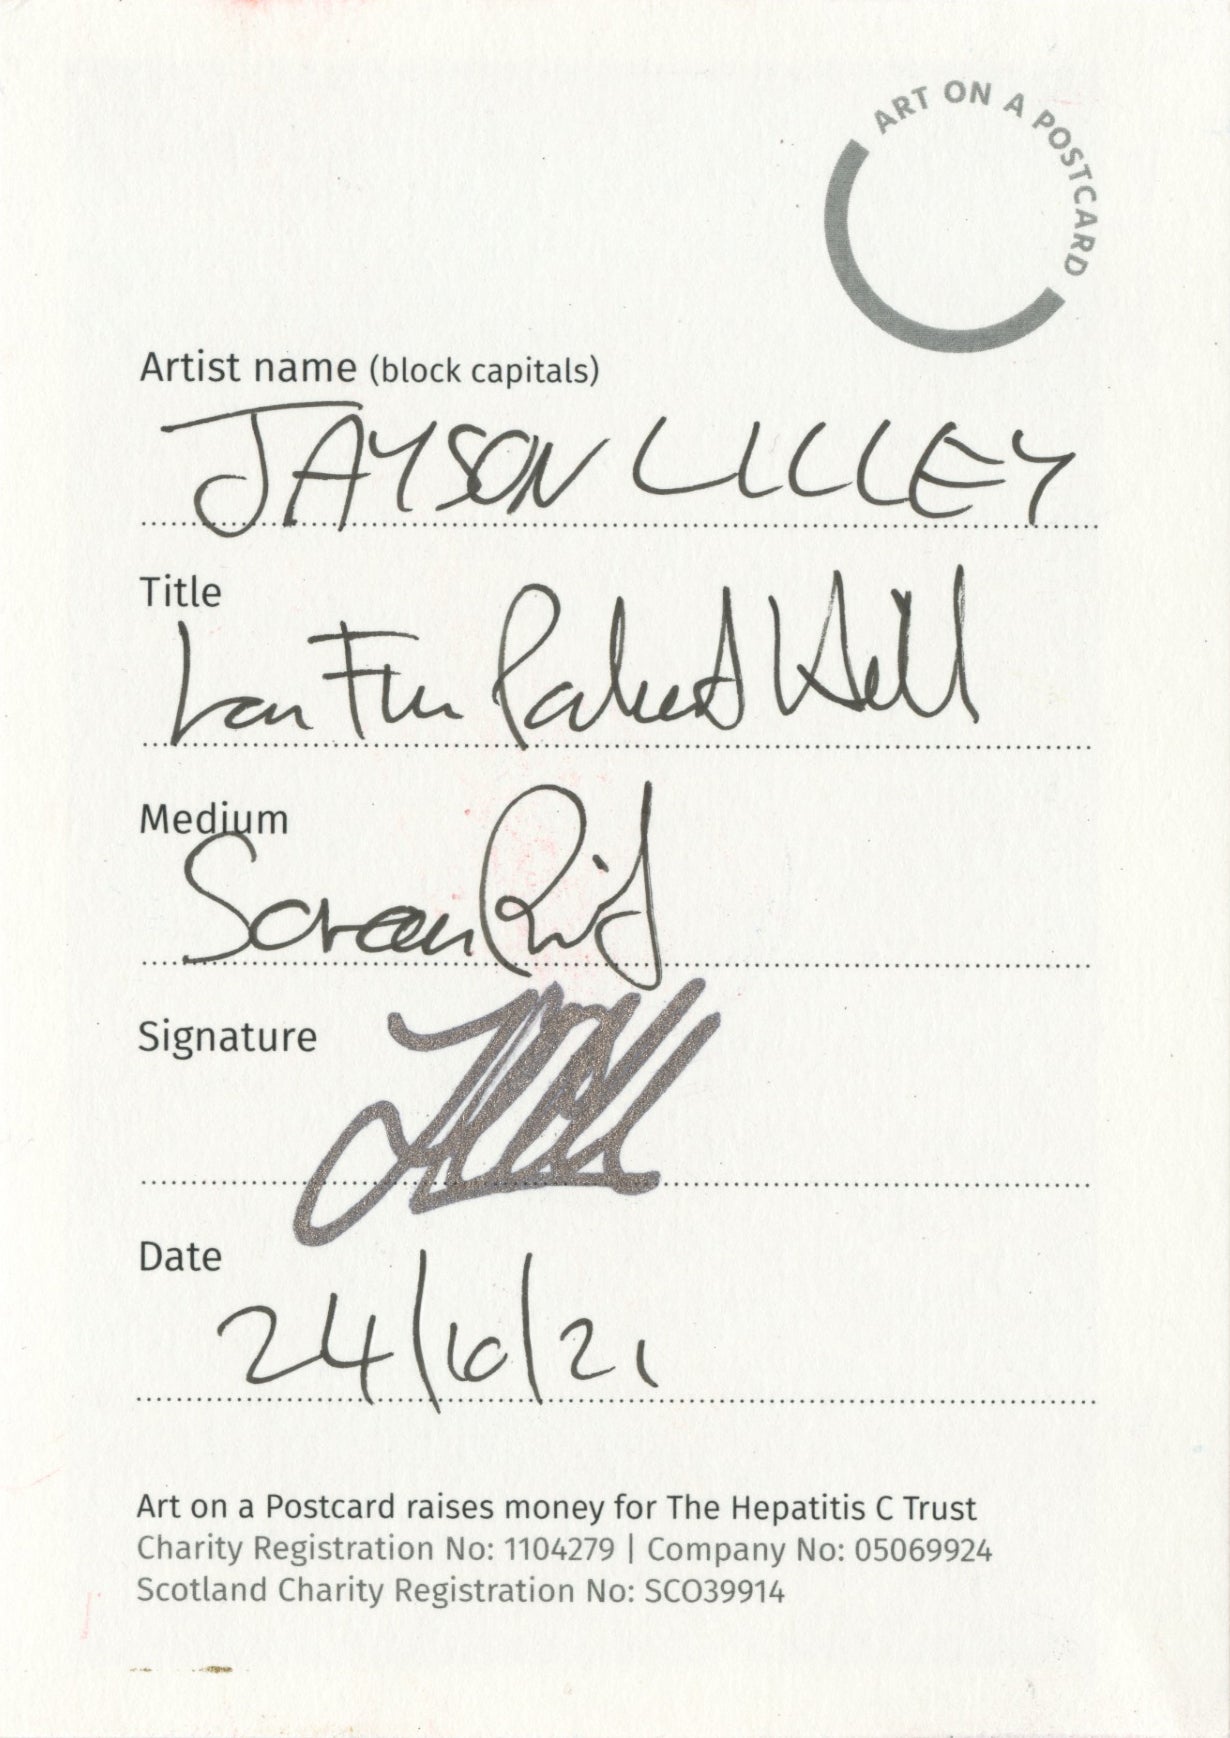 ART ON A POSTCARD
Artist name (block capitals)
JAYSON LILLEY
Title
Lon Hill
Medium
Screen Print
Signature
Date
24/10/21
Art on a Postcard raises money for The Hepatitis C Trust
Charity Registration No: 1104279 | Company No: 05069924
Scotland Charity Registration No: SCO39914